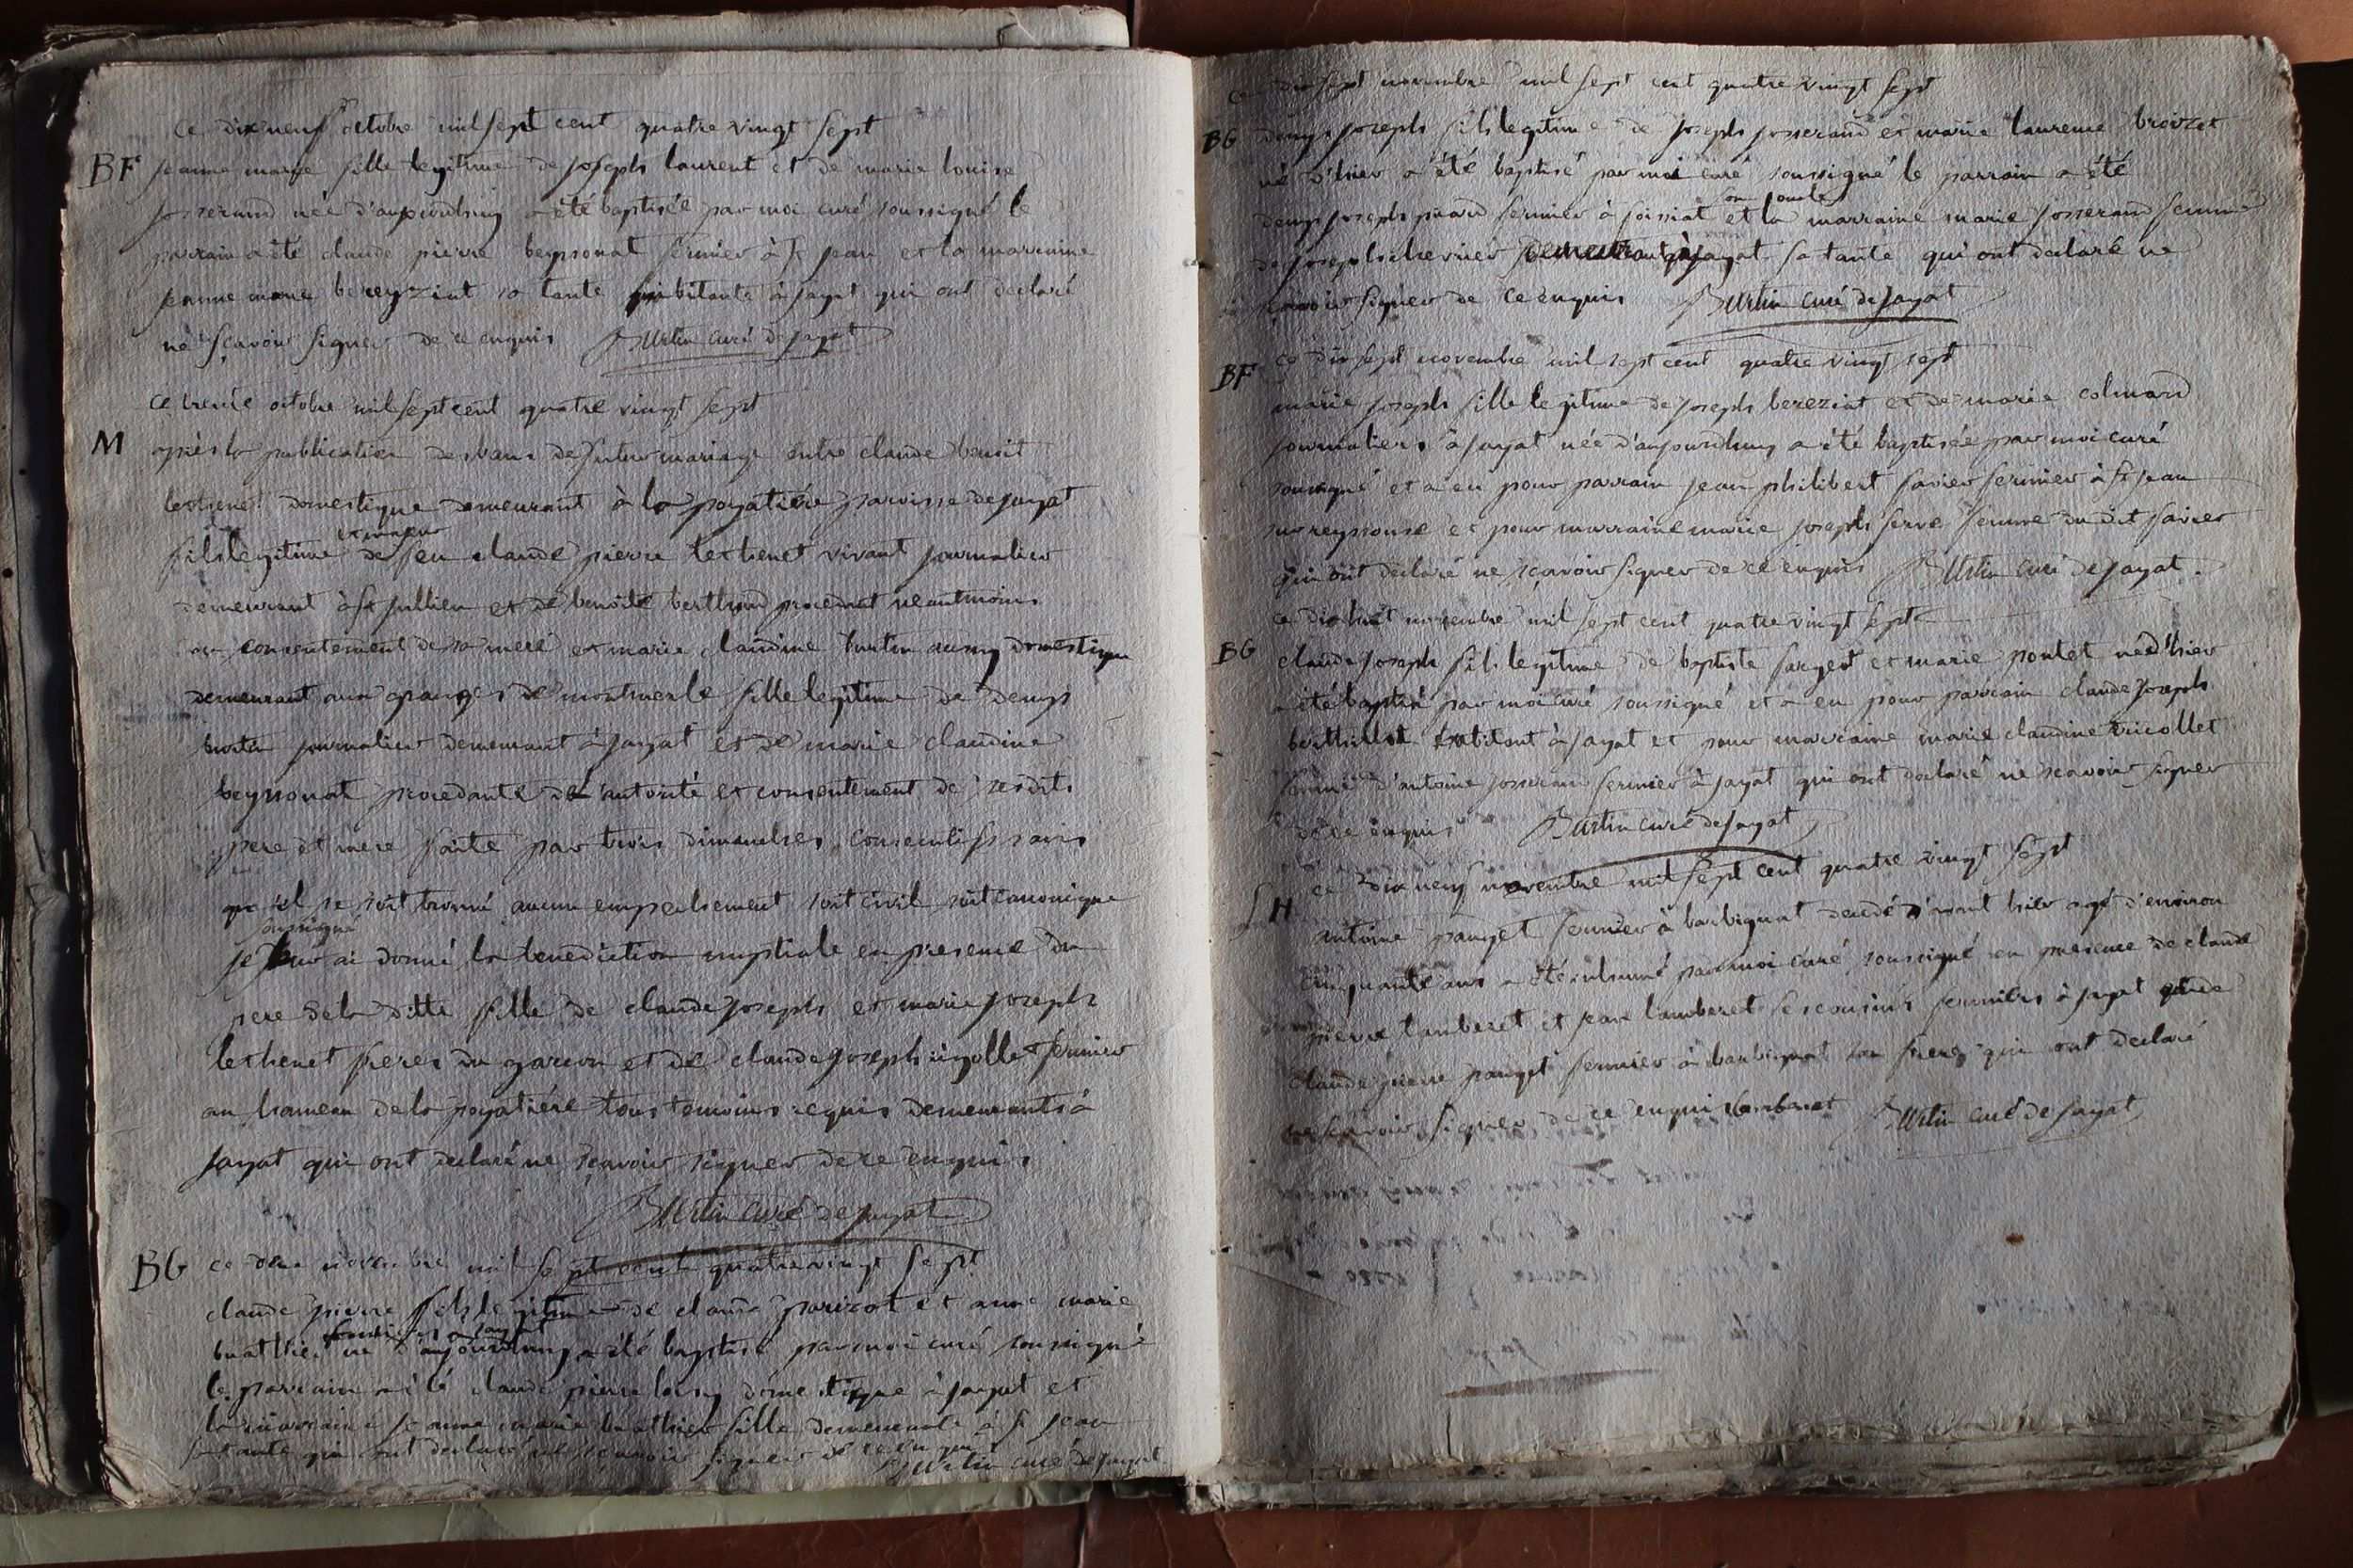 ce dix neuf octobre mil sept cent quatre vingt sept
BF jeanne marie fille legitime de joseph laurent et de marie louise
josserand née d'aujourdhuy a été baptisée par moi curé soussigné le
parrain a été claude pierre beyssonat fermier à st jean et la marraine
jeanne marie bereyziat sa tante habitante à jayat qui ont declaré
ne sçavoir signer de ce enquis Burtin curé de jayat
ce trente octobre mil sept cent quatre vingt sept
M après la publication des bans de futur mariage entre claude benoit
lethenet domestique demeurant à la poyatiére paroisse de jayat
et majeur
fils legitime de feu claude pierre lethenet vivant journalier
demeurant à st jullien et de benoite berthod procedant neantmoins
au consentement de sa mere et marie claudine burtin aussy domestique
demeurant aux granges de montmerle fille legitime de denys
burtin journalier demeurant à jayat et de marie claudine
beyssonat procedante de l'autorité et consentement de sesdits
pere et mere faite par trois dimanches consecutifs sans
qu'il se soit trouvé aucun empechement soit civil soit canonique
soussigné
je leur ai donné la benediction nuptiale en presence du
pere de la ditte fille de claude joseph et marie joseph
lethenet freres du garcon et de claude joseph rigollet fermier
au hameau de la poyatiére tous temoins requis demeurants à
jayat qui ont declaré ne sçavoir signer de ce enquis
Burtin curé de jayat
BG ce novembre mil sept cent quatre vingt sept
claude pierre fils legitime de claude parizot et anne marie
à jayat
buathier né d'aujourdhuy a été baptisé par moi curé soussigné
le parrain a été claude pierre domestique à jayat et
la marraine jeanne marie buathier fille demeurante à st jean
sa tante qui ont declaré ne sçavoir signer de ce enquis
Burtin curé de jayat
ce dix sept novembre mil sept cent quatre vingt sept
BG denys joseph fils legitime de joseph josserand et marie laurence
né d'hier a été baptisé par moi curé soussigné le parrain a été
denys joseph fermier à foissiat et la marraine marie josserand femme
de joseph chevrier demeurant à jayat sa tante qui ont declaré ne
sçavoir signer de ce enquis Burtin curé de jayat
BF ce dix sept novembre mil sept cent quatre vingt sept
marie joseph fille legitime de joseph bereziat et de marie colmard
journaliers à jayat née d'aujourdhuy a été baptisée par moi curé
soussigné et a eu pour parrain jean philibert favier fermier à st jean
sur reyssouse et pour marraine marie joseph serve femme du dit favier
qui ont declaré ne sçavoir signer de ce enquis Burtin curé de jayat
ce dix huit novembre mil sept cent quatre vingt sept
BG claude joseph fils legitime de baptiste farget et marie pontet né d'hier
a été baptisé par moi curé soussigné et a eu pour parrain claude joseph
berthillot habitant à jayat et pour marraine marie claudine vricollet
femme d'antoine josserand fermier à jayat qui ont declaré ne scavoir signer
de ce enquis Burtin curé de jayat
ce dix neuf novembre mil sept cent quatre vingt sept
SH antoine pauget fermier à barbignat decedé avant hier agé d'environ
cinquante ans a été inhumé par moi curé soussigné en presence de claude
pierre lamberet et jean lamberet ses cousins fermiers à jayat et de
claude pierre pauget fermier à barbignat son frere qui ont declaré
ne sçavoir signer de ce enquis lamberet Burtin curé de jayat